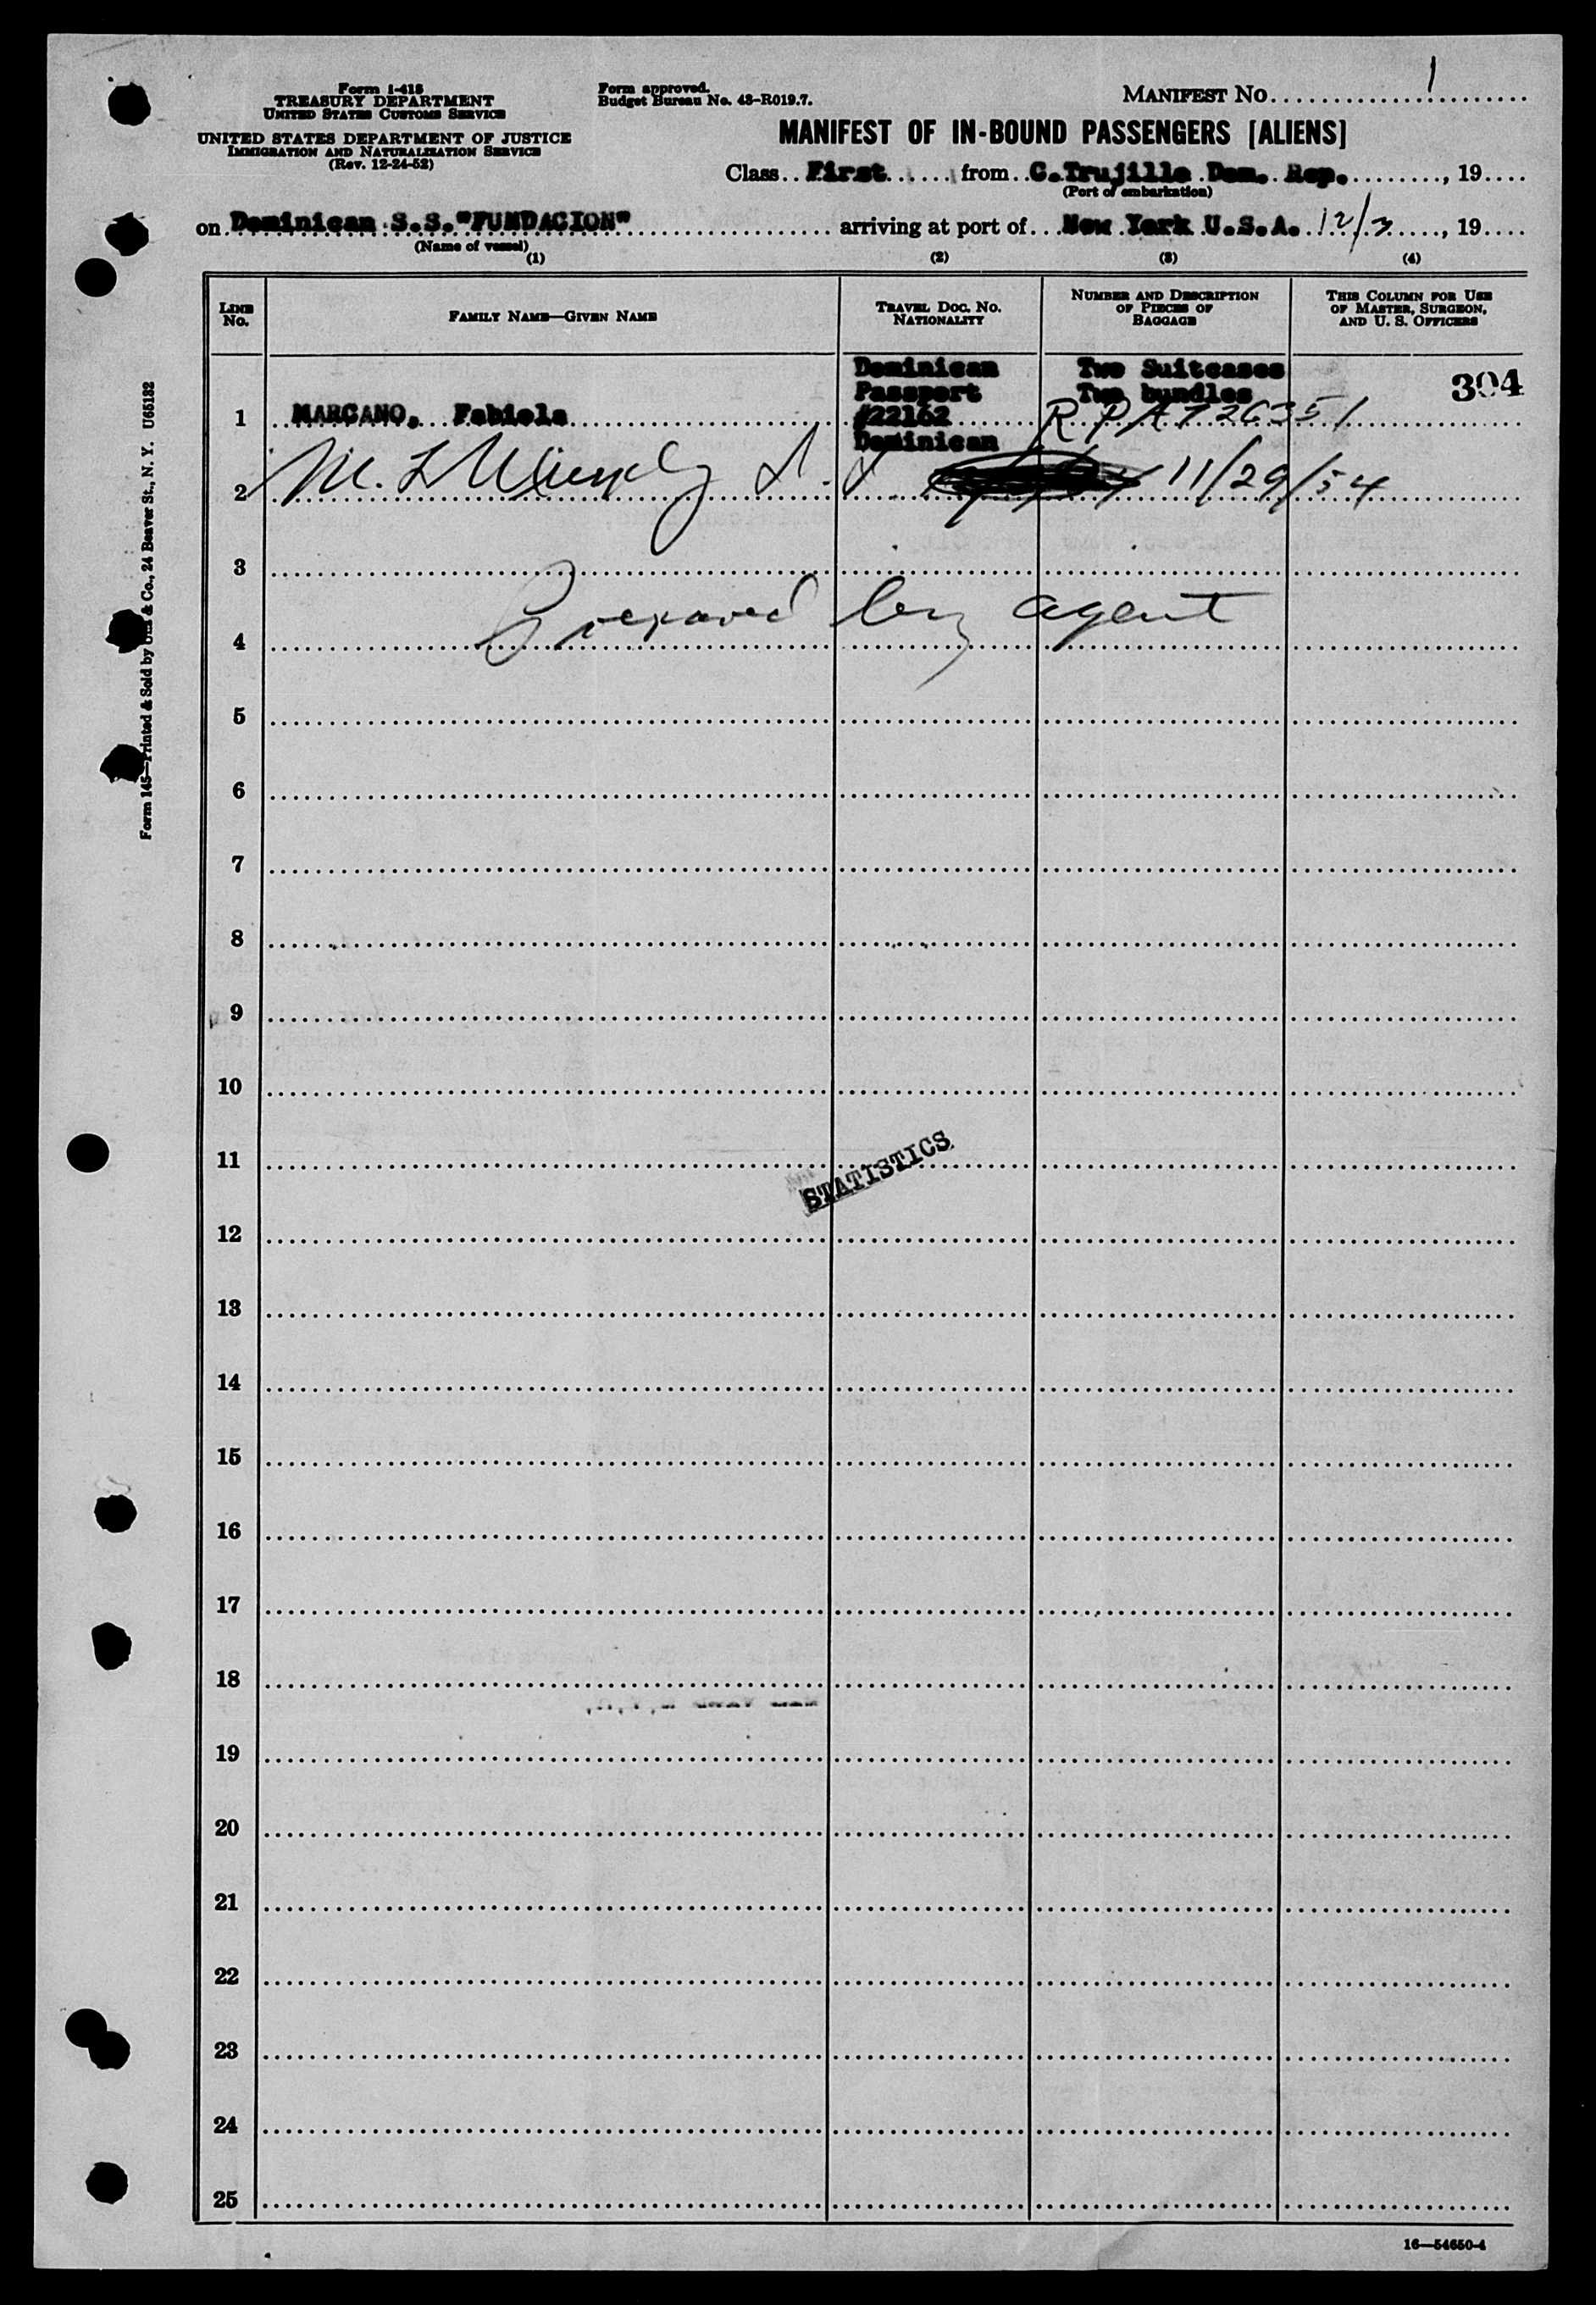 Form I-418
TREASURY DEPARTMENT
UNITED STATES CUSTOMS SERVICE
UNITED STATES DEPARTMENT OF JUSTICE
IMMIGRATION AND NATURALIZATION SERVICE
(Rev. 12-24-52)
Form approved.
Budget Bureau No. 43-R019.7.
MANIFEST NO. 1
MANIFEST OF IN-BOUND PASSENGERS [ALIENS]
Class First from C.Trujillo Dom. Rep. , 19
(Port of embarkation)
on Dominican S.S."FUNDACION" arriving at port of New York U.S.A. 12/3 , 19
(Name of vessel)
(1) (2) (3) (4)
LINE No.
FAMILY NAME—GIVEN NAME
TRAVEL DOC. NO. NATIONALITY
NUMBER AND DESCRIPTION OF PIECES OF BAGGAGE
THIS COLUMN FOR USE OF MASTER, SURGEON, AND U. S. OFFICERS
1 MARCANO, Fabiola
Dominican
Passport
#22162
Dominican
Two Suitcases
Two bundles
304
R P A 726351
2 M. L. Murphy 11/29/54
3
Prepared by agent
4
5
6
7
8
9
10
11
STATISTICS
12
13
14
15
16
17
18
19
20
21
22
23
24
25
16—54650-4
Form 145—Printed & Sold by & Co., 24 Beaver St., N. Y. U65132